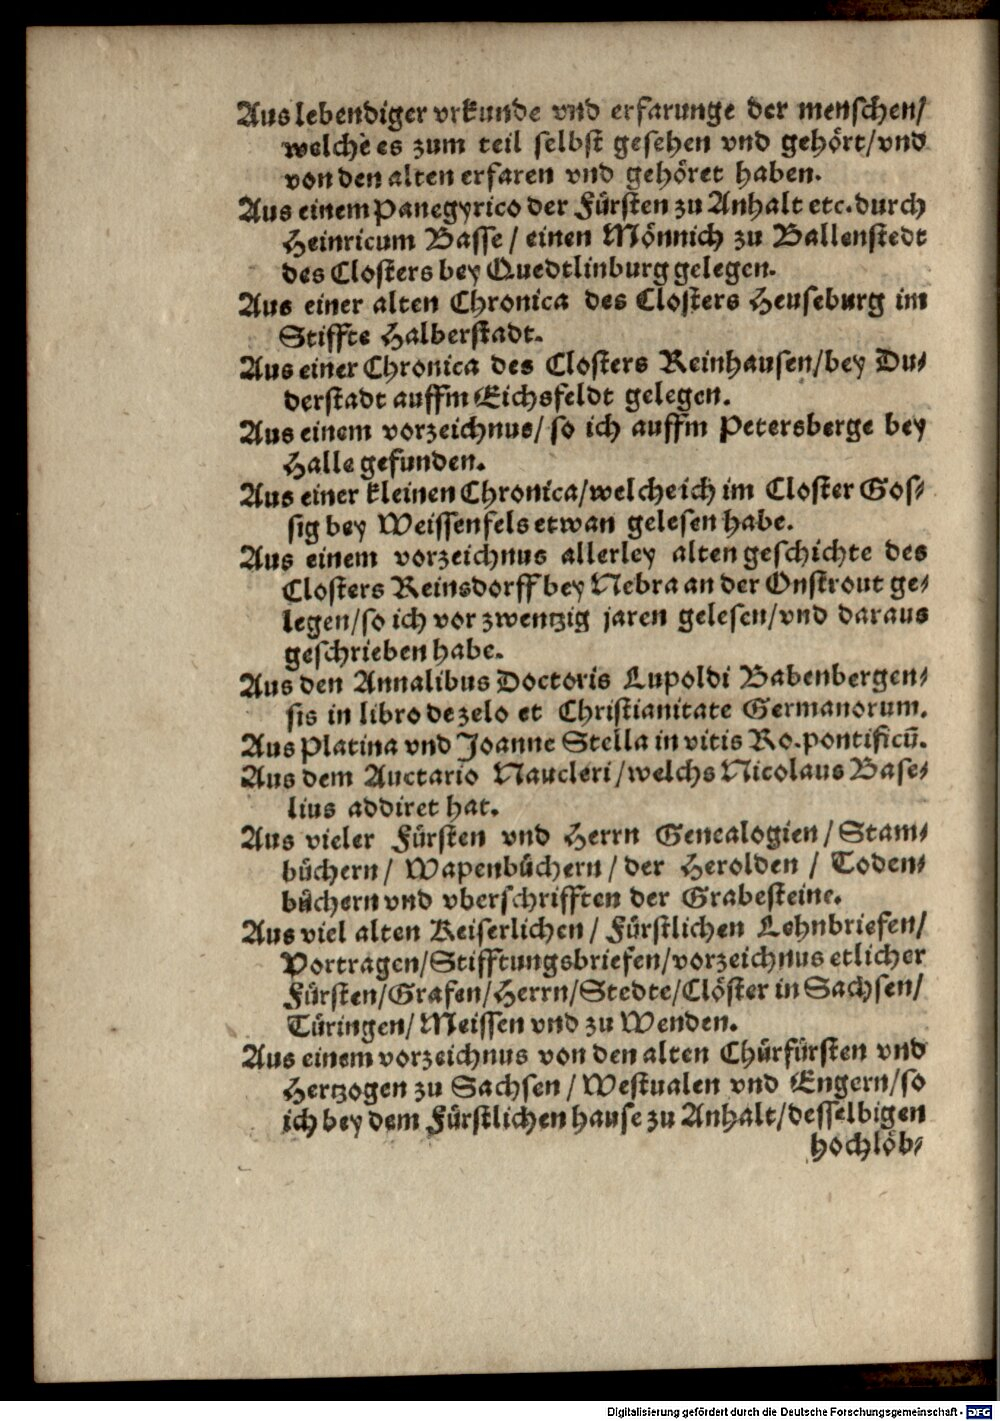 Aus lebendiger vrkunde vnd erfarunge der menschen/
welche es zum teil selbst gesehen vnd gehört/vnd
von den alten erfaren vnd gehöret haben.
Aus einem Panegyrico der Fürsten zu Anhalt etc. durch
Heinricum Basse / einen Mönnich zu Ballenstedt
des Closters bey Quedtlinburg gelegen.
Aus einer alten Chronica des Closters Heuseburg im
Stiffte Halberstadt.
Aus einer Chronica des Closters Reinhausen/bey Du-
derstadt auffm Eichsfeldt gelegen.
Aus einem vorzeichnus/ so ich auffm Petersberge bey
Halle gefunden.
Aus einer kleinen Chronica/welche ich im Closter Gos-
sig bey Weissenfels etwan gelesen habe.
Aus einem vorzeichnus allerley alten geschichte des
Closters Reinsdorff bey Nebra an der Onstrout ge-
legen/so ich vor zwentzig jaren gelesen/vnd daraus
geschrieben habe.
Aus den Annalibus Doctoris Lupoldi Babenbergen-
sis in libro de zelo et Christianitate Germanorum.
Aus Platina vnd Joanne Stella in vitis Ro. pontificū.
Aus dem Auctario Naucleri/welchs Nicolaus Base-
lius addiret hat.
Aus vieler Fürsten vnd Herrn Genealogien/ Stam-
büchern/ Wapenbüchern/ der Herolden / Toden-
büchern vnd vberschrifften der Grabesteine.
Aus viel alten Keiserlichen / Fürstlichen Lehnbriefen/
Vortragen/Stifftungsbriefen/vorzeichnus etlicher
Fürsten/Grafen/Herrn/Stedte/Clöster in Sachsen/
Türingen/ Meissen vnd zu Wenden.
Aus einem vorzeichnus von den alten Chürfürsten vnd
Hertzogen zu Sachsen / Westualen vnd Engern/so
ich bey dem Fürstlichen hause zu Anhalt/desselbigen
hochlöb-
Digitalisierung gefördert durch die Deutsche Forschungsgemeinschaft - DFG